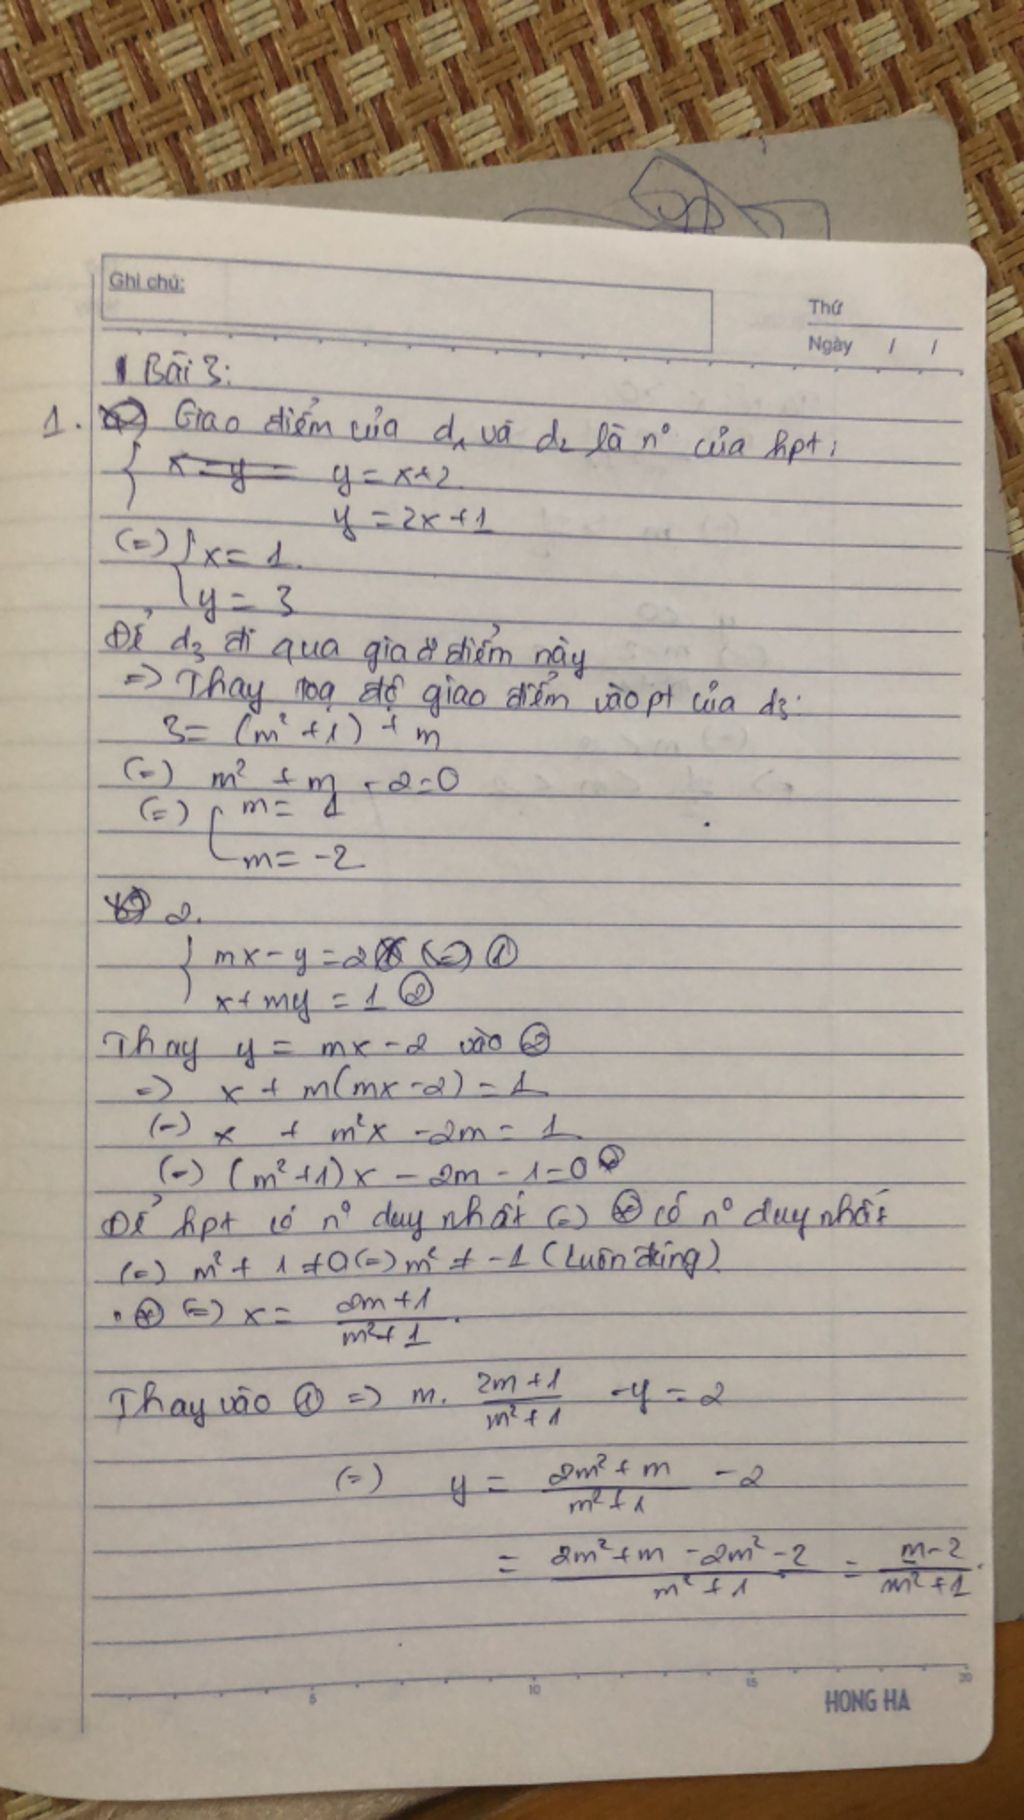 Ghi chú:
Thứ
Ngày / /
Bài 3:
1. Giao điểm của d₁ và d₂ là n° của hpt:
{ y = x+2
y = 2x+1
(=) { x = 1
y = 3
Để d₃ đi qua giao điểm này
=> Thay toạ độ giao điểm vào pt của d₃:
3 = (m²+1) + m
(=) m² + m - 2=0
(=) [ m = 1
m = -2
2.
{ mx - y = 2 (=) ①
x + my = 1 ②
Thay y = mx - 2 vào ②
=> x + m(mx - 2) = 1
(=) x + m²x - 2m = 1
(=) (m²+1)x - 2m - 1=0 ⊛
Để hpt có n° duy nhất (=) ⊛ có n° duy nhất
(=) m² + 1 ≠ 0 (=) m² ≠ -1 (Luôn đúng)
⊛ (=) x = (2m+1)/(m²+1)
Thay vào ① => m. (2m+1)/(m²+1) - y = 2
(=) y = (2m²+m)/(m²+1) - 2
= (2m²+m - 2m² - 2)/(m²+1) = (m-2)/(m²+1).
5 10 15 20
HONG HA